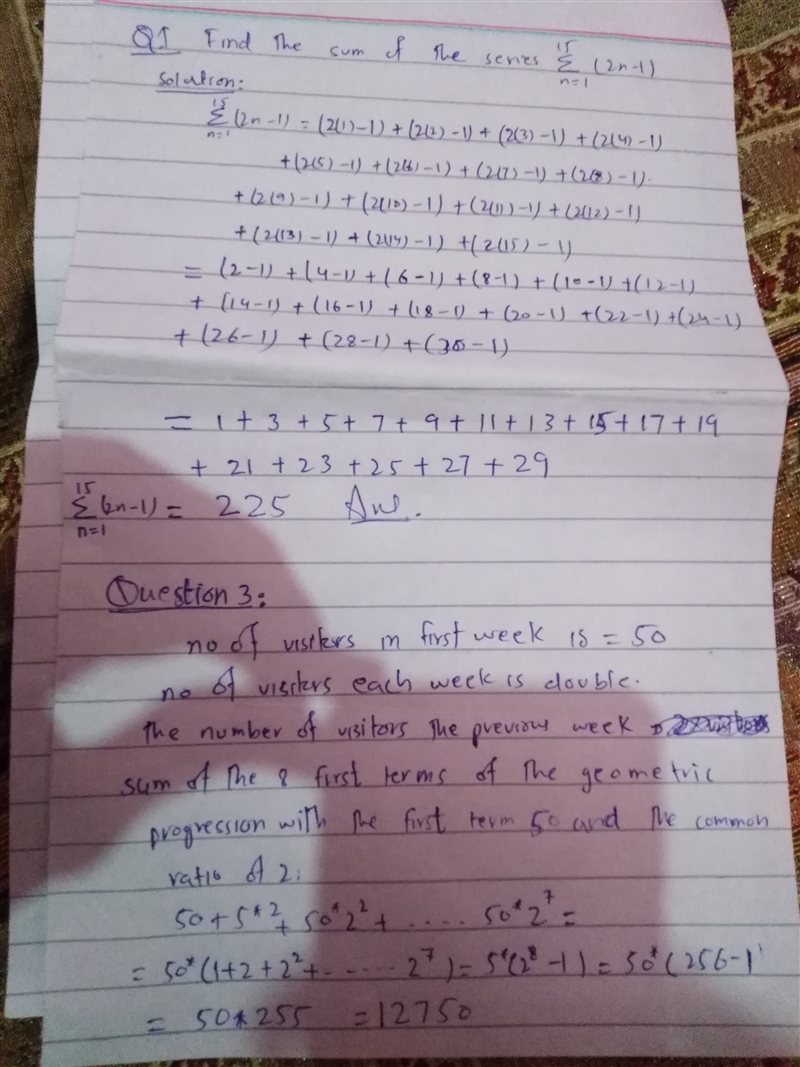 Q1 Find the sum of the series 15 Σ n=1 (2n-1)
Solution:
15 Σ n=1 (2n-1) = (2(1)-1) + (2(2)-1) + (2(3)-1) + (2(4)-1)
+(2(5)-1) +(2(6)-1) + (2(7)-1) +(2(8)-1).
+(2(9)-1) + (2(10)-1) + (2(11)-1) + (2(12)-1)
+(2(13)-1) +(2(14)-1) +(2(15)-1)
= (2-1) + (4-1) + (6-1) + (8-1) + (10-1) +(12-1)
+ (14-1) + (16-1) + (18-1) + (20-1) +(22-1) +(24-1)
+ (26-1) + (28-1) +(30-1)
= 1 + 3 + 5 + 7 + 9 + 11 + 13 + 15 + 17 + 19
+ 21 + 23 + 25 + 27 + 29
15 Σ n=1 (2n-1) = 225 Ans.
Question 3:
no of visiters in first week is = 50
no of visiters each week is double.
the number of visitors the previous week
sum of the 8 first terms of the geometric
progression with the first term 50 and the common
ratio of 2:
50 + 5*2 + 50*2² + ..... 50*2⁷ =
= 50*(1+2+2²+...... 2⁷) = 5*(2⁸-1) = 50*(256-1)
= 50*255 = 12750